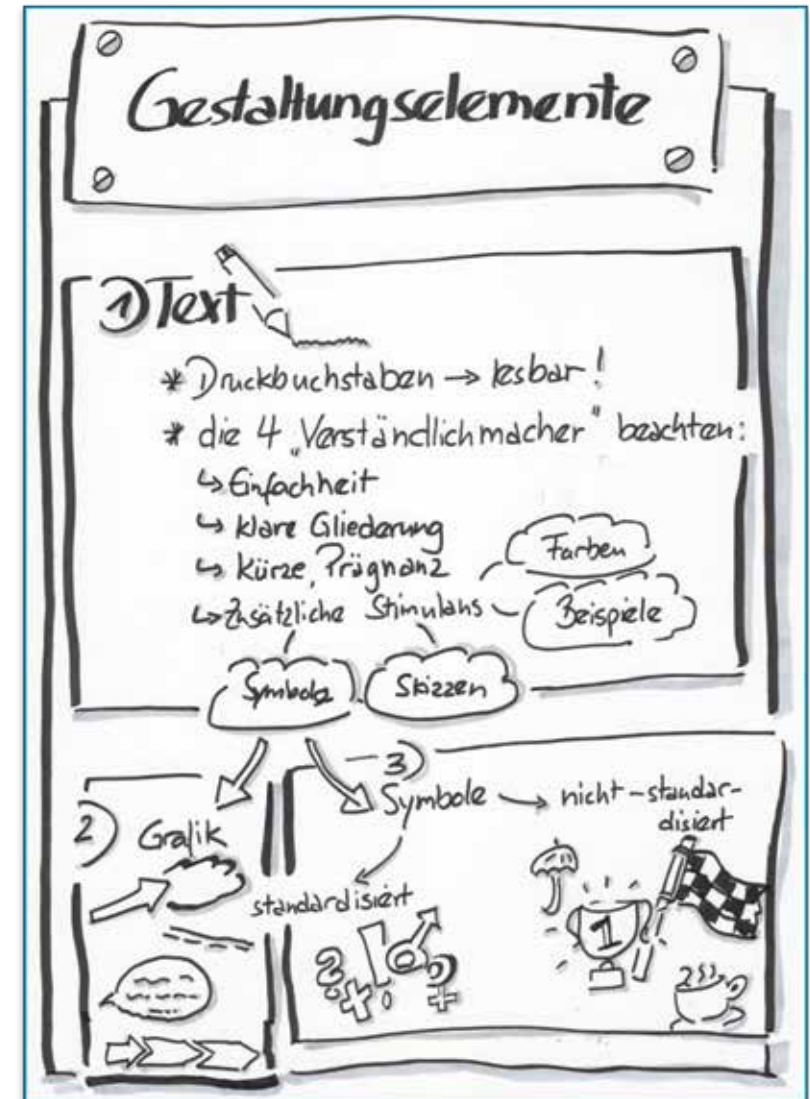 Gestaltungselemente
1) Text
* Druckbuchstaben → lesbar!
* die 4 „Verständlichmacher“ beachten:
↳ Einfachheit
↳ klare Gliederung
↳ Kürze, Prägnanz
↳ Zusätzliche Stimulans
Farben
Beispiele
Symbole
Skizzen
2) Grafik
3)
Symbole → nicht-standar-
disiert
standardisiert
? ! + ♂ ♀
1